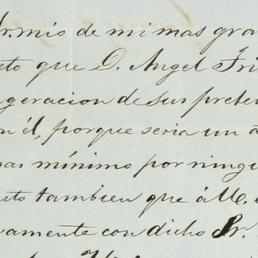 Sr. mio de mi mas gra
eto que D. Angel Fri
geracion de sus prete
n él, porque seria un a
mas mínimo por ningu
eto tambien que á M. d
vamente con dicho Sr.